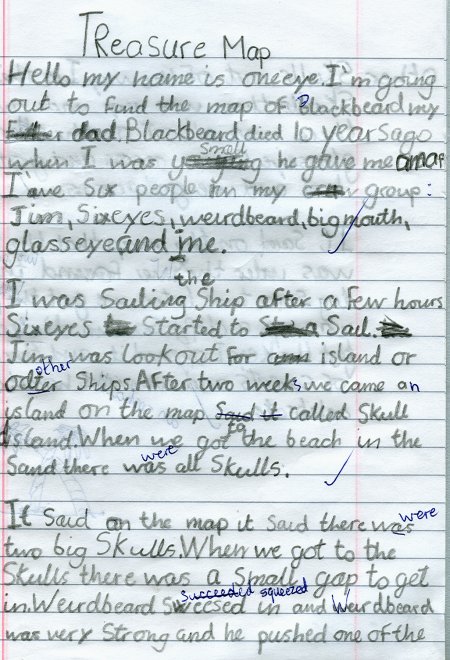 Treasure Map
Hello my name is oneeye. I'm going
out to find the map of Blackbeard my
dad. Blackbeard died 10 years ago
small
when I was he gave me a map
I've six people in my group:
Jim, Sixeyes, weirdbeard, bigmouth,
glasseye and me.
the
I was Sailing Ship after a few hours
Sixeyes Started to Sail.
Jim was lookout for island or
other
odter Ships. After two weeks we came an
island on the map Said it called Skull
to
Island. When we got the beach in the
were
Sand there was all Skulls.
were
It Said on the map it Said there was
two big Skulls. When we got to the
Skulls there was a Small gap to get
Succeeded squeezed
in. Weirdbeard in and Weirdbeard
was very Strong and he pushed one of the